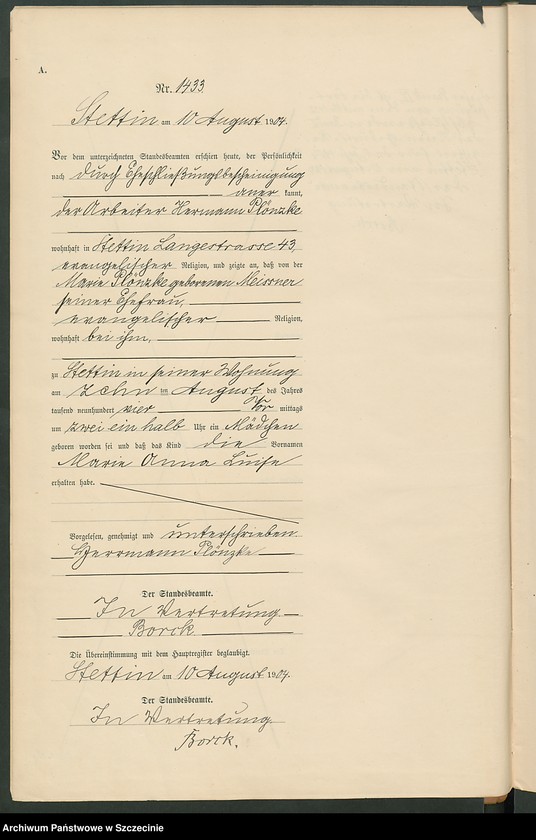 A.
Nr. 1433
Stettin am 10 August 1904.
Vor dem unterzeichneten Standesbeamten erschien heute, der Persönlichkeit
nach durch Eheschließungsbescheinigung
aner kannt,
der Arbeiter Hermann Plönzke
wohnhaft in Stettin Langestrasse 43,
evangelischer Religion, und zeigte an, daß von der
Marie Plönzke geborenen Meissner
seiner Ehefrau,
evangelischer Religion,
wohnhaft bei ihm,
zu Stettin in seiner Wohnung
am zehn ten August des Jahres
tausend neunhundert vier Vor mittags
um zwei ein halb Uhr ein Mädchen
geboren worden sei und daß das Kind die Vornamen
Marie Anna Luise
erhalten habe.
Vorgelesen, genehmigt und unterschrieben
Herrmann Plönzke
Der Standesbeamte.
In Vertretung
Borck
Die Übereinstimmung mit dem Hauptregister beglaubigt.
Stettin am 10 August 1904.
Der Standesbeamte.
In Vertretung
Borck.
Archiwum Państwowe w Szczecinie